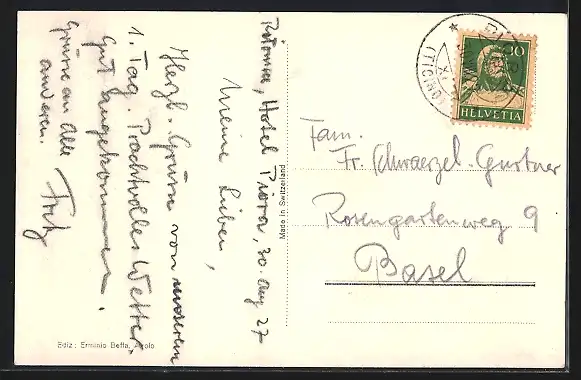 Ritomsee, Hotel Piora, 30. Aug 27
Meine Lieben,
Herzl. Grüsse von unserem
1. Tag. Prachtvolles Wetter.
Gut angekommen.
Grüsse an alle
anderen.
Fritz
Made in Switzerland
Ediz: Erminio Beffa, Airolo
PIORA
(TICINO)
10
HELVETIA
Fam.
Fr. Schwaerzel-Gurtner
Rosengartenweg 9
Basel